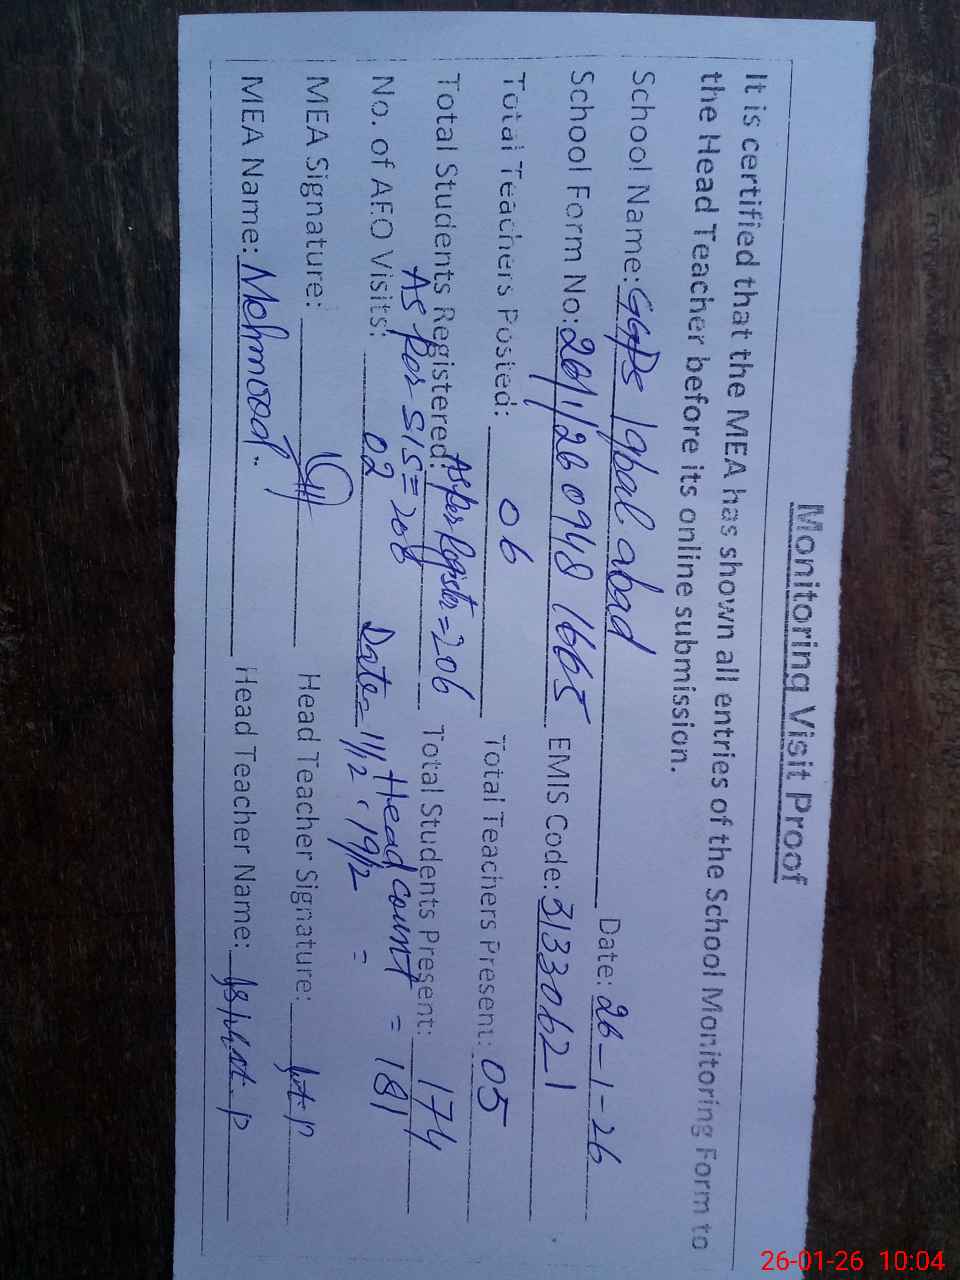 Monitoring Visit Proof
It is certified that the MEA has shown all entries of the School Monitoring Form to
the Head Teacher before its online submission.
School Name: GGPS Iqbal abad Date: 26-1-26
School Form No: 26/1/26 0948 1665 EMIS Code: 31330621
Total Teachers Posted: 06 Total Teachers Present: 05
Total Students Registered: As per Register = 206 Total Students Present: 174
As per SIS = 206 Head count = 181
No. of AEO Visits: 02 Date = 1/12, 19/12 =
MEA Signature: Head Teacher Signature:
MEA Name: Mehmood Head Teacher Name:
26-01-26 10:04